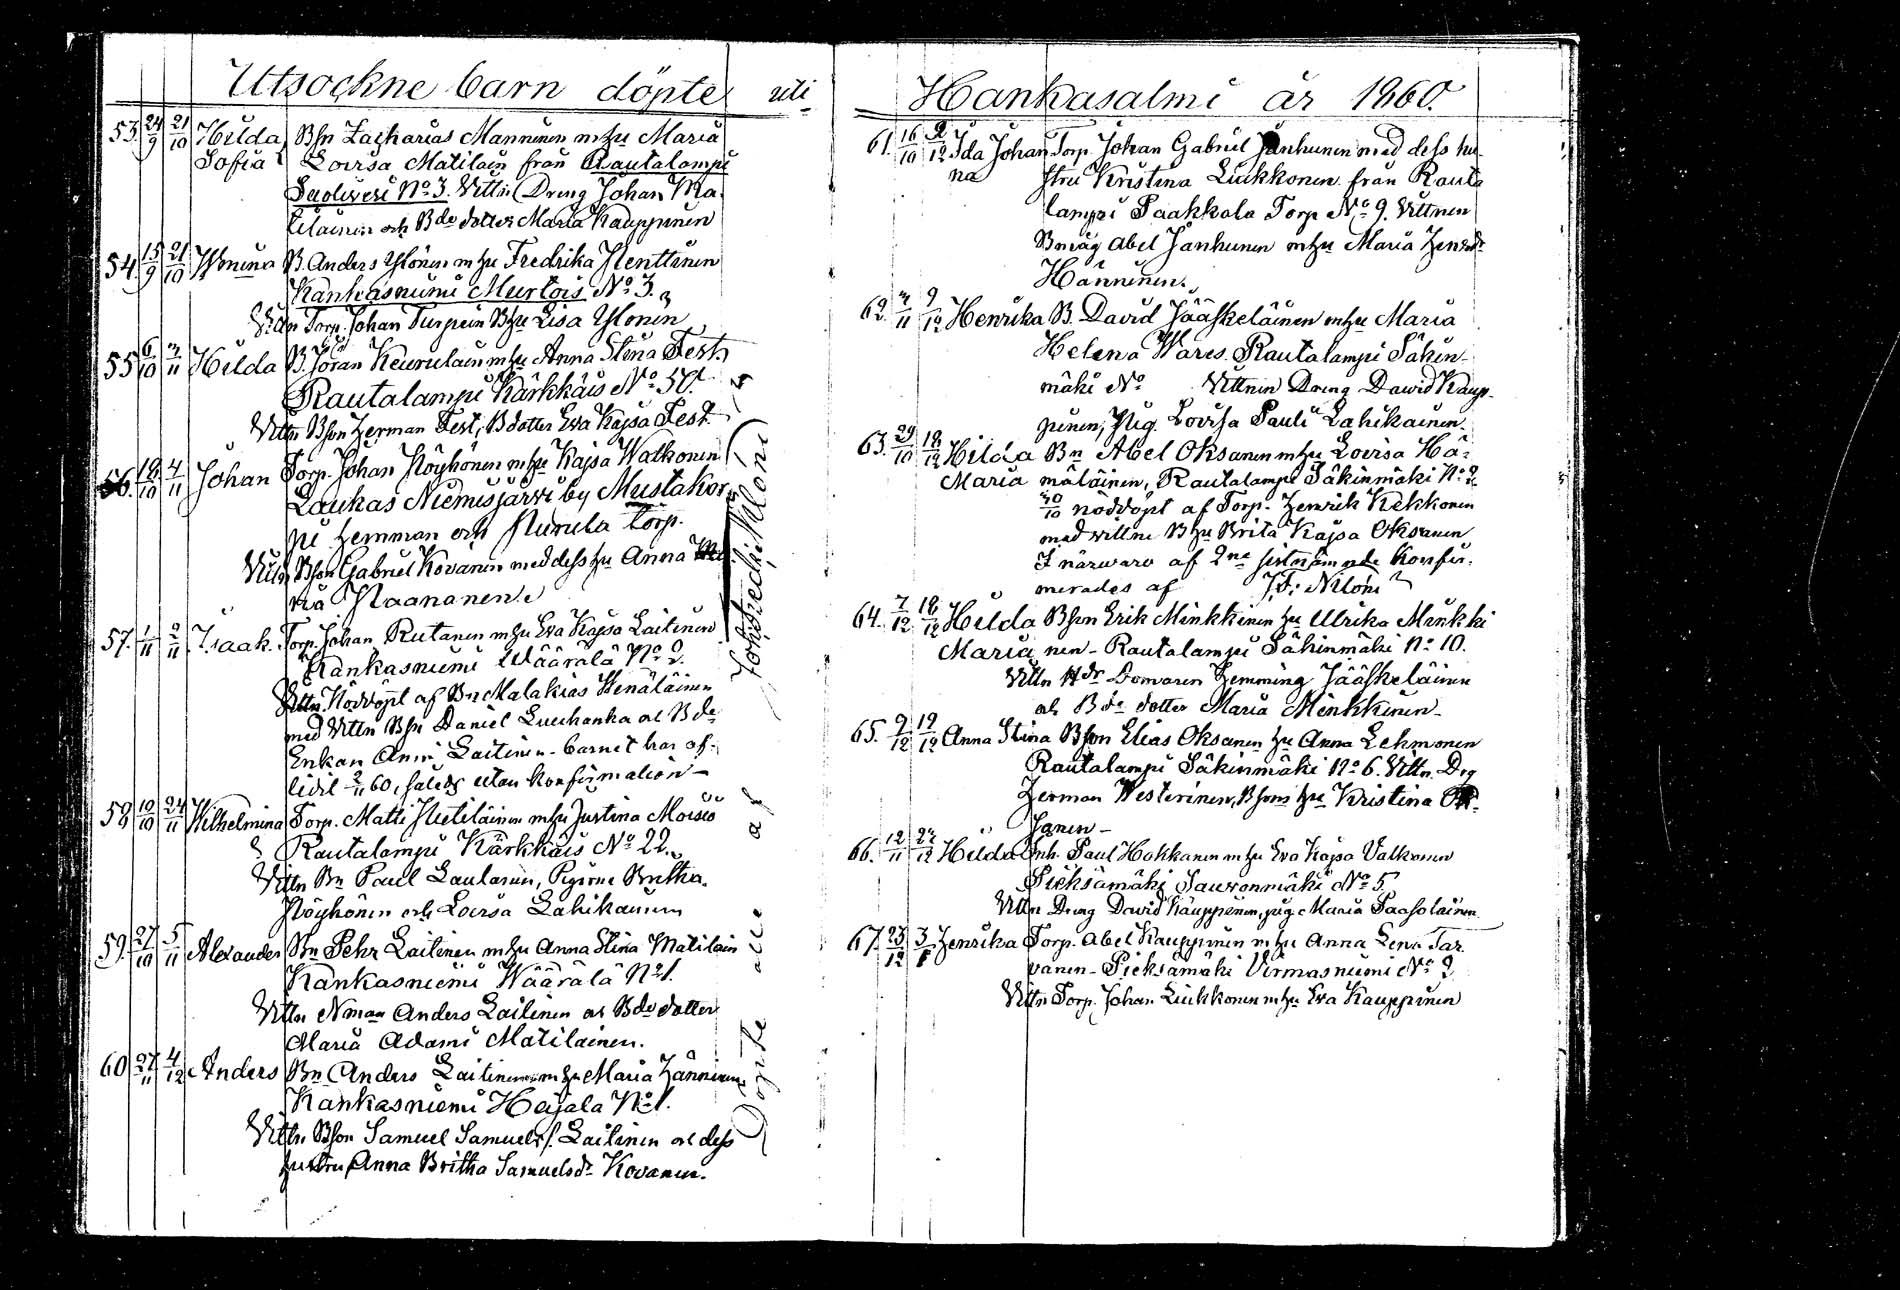 Utsockne barn döpte uti
53. 24/9 21/10 Hilda Bsn Zacharias Manninen m hu Maria
Sofia Lovisa Matilain från Rautalampi
No 3. Vittn Dreng Johan Ma-
tilainen och Bde dotter Maria Kauppinen
54 15/9 21/10 B. Anders Ylönen m hu Fredrika Henttinen
Kankasniemi Murtois No 3.
Vittn Torp. Johan Turpein Bhu Lisa Ylönen
55 6/10 Hilda B. Keurulain m hu Anna Stina Fest.
Rautalampi Kärkkäis No 50.
Vittn Bson Herman Fest, B dotter Eva Kajsa Fest.
56. 18/10 4/11 Johan Torp. Johan Pöyhönen m hu Kajsa Watkonen
Laukas Niemisjärvi by Mustakor-
pi hemman och torp.
Vittn Bson Gabriel Kovanen med dess hu Anna
ria Paananen.
57. 1/11 2/11 Isaak. Torp. Johan Rutanen m hu Eva Kajsa Laitinen
Kankasniemi Wäärälä No 2.
Vittn. Nöddöpt af Bn Malakias Wenäläinen
med Vittn Bsn Daniel ock Bde
Enkan Laitinen - barnet har af-
lidit utan konfirmation -
58 10/10 24/11 Wilhelmina Torp. Matti Hietiläinen m hu Justina Moisio
Rautalampi Kärkkäis No 22.
Vittn Bn Paul Lautanen, Pigorne Britha
Pöyhönen och Lovisa Lahikainen
59. 27/10 5/11 Alexander Bn Pehr Laitinen m hu Anna Stina Matilain
Kankasniemi Wäärälä No 1.
Vittn Nman Anders Laitinen ock Bde dotter
Maria Adami Matilainen.
60 27/11 4/12 Anders Bn Anders Laitinen m hu Maria Hänninen
Kankasniemi Heijala No 1.
Vittn Bson Samuel Samuels s. Laitinen ock dess
hustru Anna Britha Samuelsdr Kovanen.
Döpte alle af Joh: Fredr: Niloni
Hankasalmi år 1860.
61. 16/10 2/12 Ida Johan Torp. Johan Gabriel Janhunen med dess hu-
na stru Kristina Liukkonen från Rauta
lampi Paakkola Torp No 9. Vittnen
Bmåg Abel Janhunen m hu Maria
Hänninen.
62. 9/12 Henrika B. David Jääskeläinen m hu Maria
Helena Wares. Rautalampi Säkin-
mäki No Vittnen Dreng David Kaup-
pinen, Pig. Lovisa Pauli Lahikainen.
63. 29/10 18/12 Hilda Bn Abel Oksanen m hu Lovisa Hä-
Maria mäläinen, Rautalampi Säkinmäki No 2
30/10 nöddöpt af Torp. Henrik Kekkonen
med vittne B hu Brita Kajsa Oksanen
I närwaro af 2ne sistnämnde konfir-
merades af J.F. Niloni
64. 7/12 18/12 Hilda Bson Erik Minkkinen hu Ulrika Minkki
Maria nen - Rautalampi Säkinmäki No 10.
Vittn Hdr Domaren Hemming Jääskeläinen
ock Bde dotter Maria Minkkinen -
65. 9/12 19/12 Anna Stina Bson Elias Oksanen hu Anna Lehmonen
Rautalampi Säkinmäki No 6. Vittn. Drg
Herman Westerinen, Bsons hu Kristina Ok-
sanen -
66. 12/11 Hilda Inh. Paul Hokkanen m hu Eva Kajsa Valkonen
Pieksämäki No 5
Vittn Dreng David Kauppinen, pig. Maria Paasolainen
67. 23/12 3/1 Henrika Torp. Abel Kauppinen m hu Anna Lena Tar-
vanen - Pieksämäki Virmasniemi No 2
Vittn Torp. Johan Liukkonen m hu Eva Kauppinen